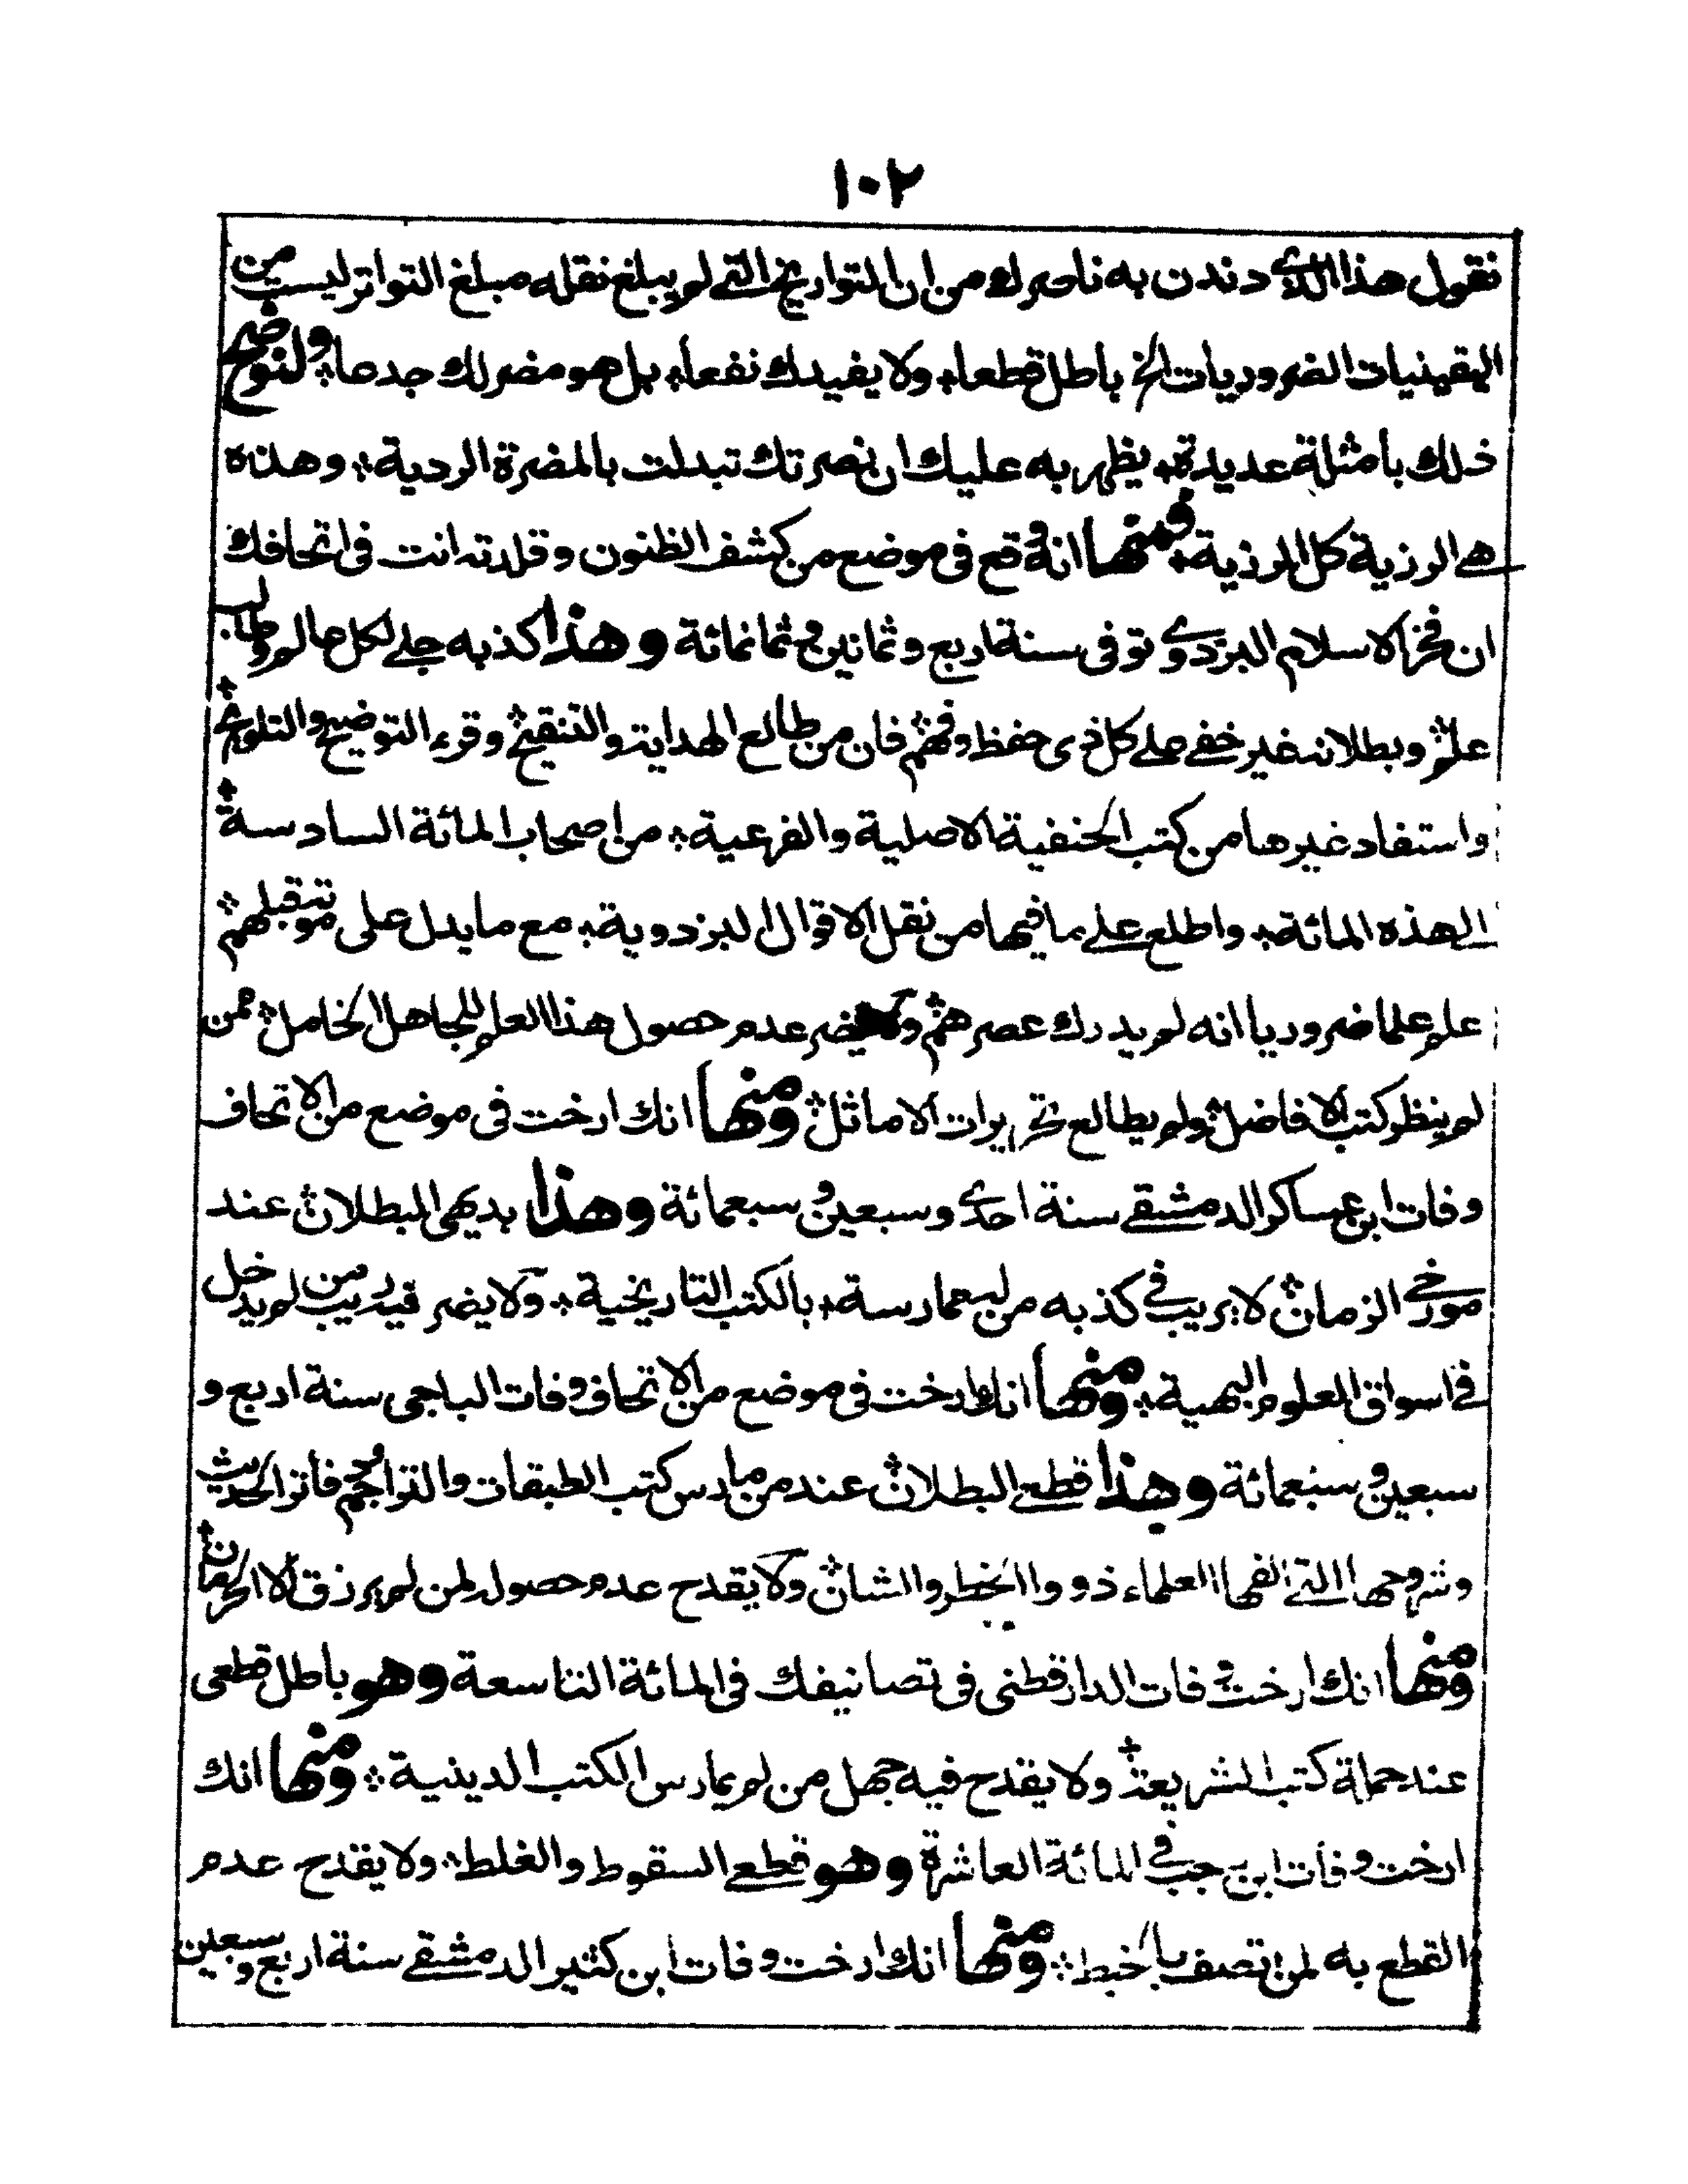 ١٠٢
نقول هذا الذى دندن به ناصرك من ان التواريخ التى لم يبلغ نقله مبلغ التواتر ليست من
اليقينيات الضروريات الخ باطل قطعا ولا يفيدك نفعا بل هو مضر لك جدعا ولنوضح
ذلك بامثلة عديدة يظهر به عليك ان نصرتك تبدلت بالمضرة الردية وهذه
هى الرزية كل الرزية فمنها انه وقع فى موضع من كشف الظنون وقلدته انت فى اتحافك
ان فخر الاسلام البزدوى توفى سنة اربع وثمانين وثمانمائة وهذا كذبه جلى لكل عالم وطالب
علم وبطلانه غير خفى على كل ذى حفظ وفهم فان من طالع الهداية والتنقيح وقرء التوضيح والتلويح
واستفاد غيرها من كتب الحنفية الاصلية والفرعية من اصحاب المائة السادسة
الى هذه المائة واطلع على ما فيها من نقل الاقوال البزدوية مع ما يدل على موته قبلهم
علم علما ضروريا انه لم يدرك عصرهم ولا يضر عدم حصول هذا العلم للجاهل الخامل ممن
لم ينظر كتب الافاضل ولم يطالع تحريرات الاماثل ومنها انك ارخت فى موضع من الاتحاف
وفات ابن عساكر الدمشقى سنة احدى وسبعين وسبعمائة وهذا بديهى البطلان عند
مورخى الزمان لا يريب فى كذبه من له ممارسة بالكتب التاريخية ولا يضر فيه ريب من لم يدخل
فى اسواق العلوم البهية ومنها انك ارخت فى موضع من الاتحاف وفات الباجى سنة اربع و
سبعين وسبعمائة وهذا قطعى البطلان عند من مارس كتب الطبقات والتراجم ودفاتر الحديث
وشروحها التى الفها العلماء ذووا الخطر والشان ولا يقدح عدم حصوله لمن لم يرزق الا الحرمان
ومنها انك ارخت وفات الدارقطنى فى تصانيفك فى المائة التاسعة وهو باطل قطعى
عند حملة كتب الشريعة ولا يقدح فيه جهل من لم يمارس الكتب الدينية ومنها انك
ارخت وفات ابن رجب فى المائة العاشرة وهو قطعى السقوط والغلط ولا يقدح عدم
القطع به لمن اتصف بالخبط ومنها انك ارخت وفات ابن كثير الدمشقى سنة اربع وسبعين